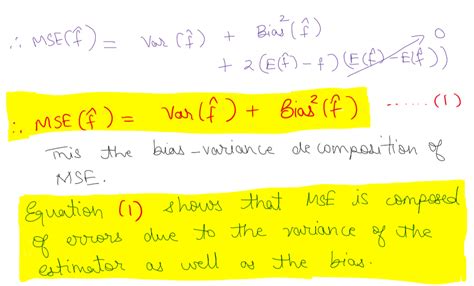 ∴ MSE(f̂) = Var(f̂) + Bias²(f̂)
+ 2(E(f̂) - f)(E(f̂) - E(f̂)) 0
∴ MSE(f̂) = Var(f̂) + Bias²(f̂) ...... (1)
This the bias-variance decomposition of
MSE.
Equation (1) shows that MSE is composed
of errors due to the variance of the
estimator as well as the bias.